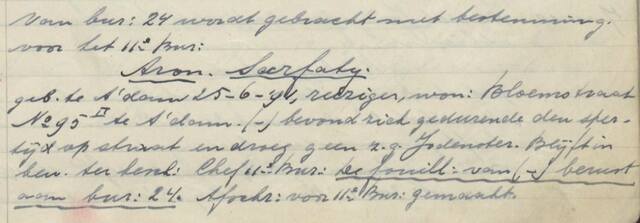 Van bur: 24 wordt gebracht met bestemming.
voor het 11e Bur:
Aron. Sarfaty.
geb. te A'dam 25-6-91, reiziger, won: Bloemstraat
No 95 II te A'dam. (-) bevond zich gedurende den sper-
tijd op straat en droeg geen z.g. Jodenster. Blijft in
bew. ter besch: Chef 11e Bur: De fouill: van (-) berust
aan bur: 24. Afschr: voor 11e Bur: gemaakt.